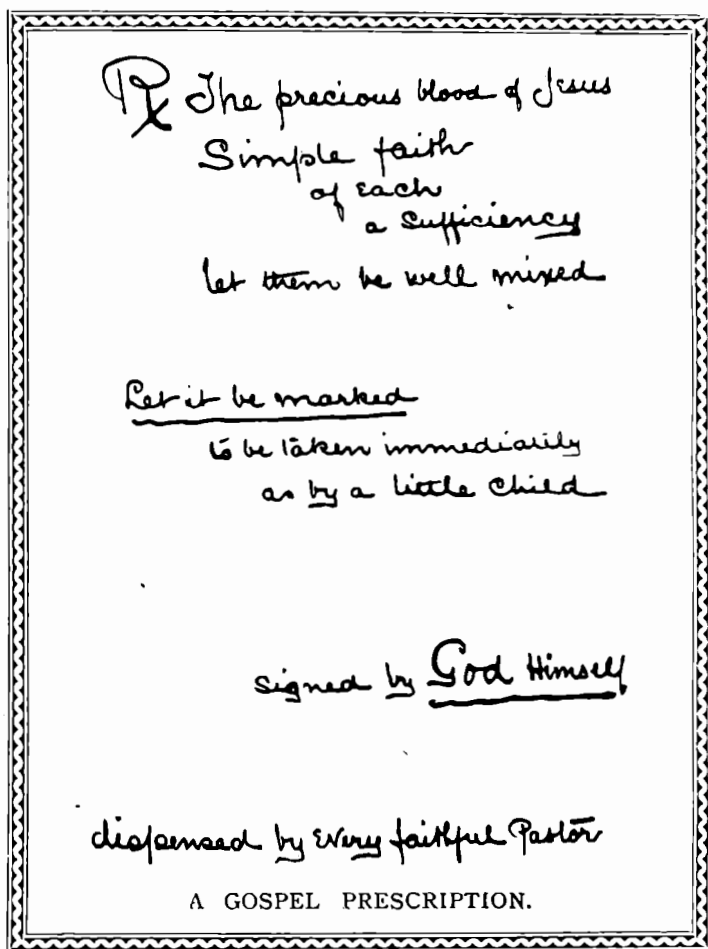 ℞ The precious blood of Jesus
Simple faith
of each
a sufficiency
let them be well mixed
Let it be marked
to be taken immediately
as by a little child
signed by God Himself
dispensed by every faithful Pastor
A GOSPEL PRESCRIPTION.